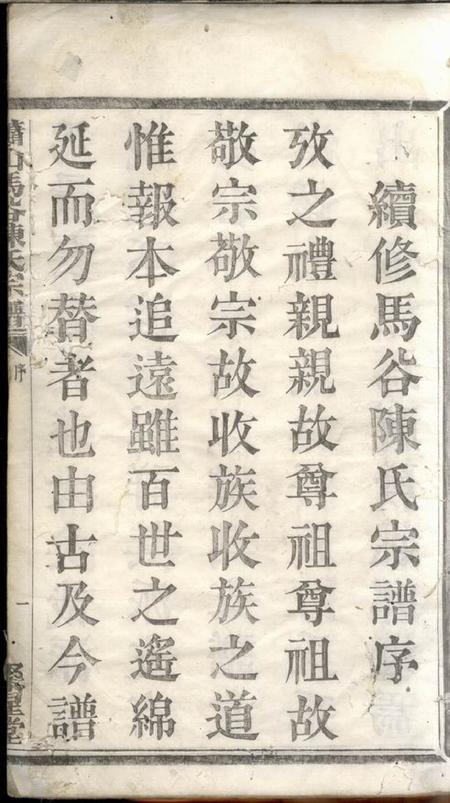 續修馬谷陳氏宗譜序
攷之禮親親故尊祖尊祖故
敬宗敬宗故收族收族之道
惟報本追遠雖百世之遙綿
延而勿替者也由古及今譜
蕭山馬谷陳氏宗譜 序 一 聚星堂